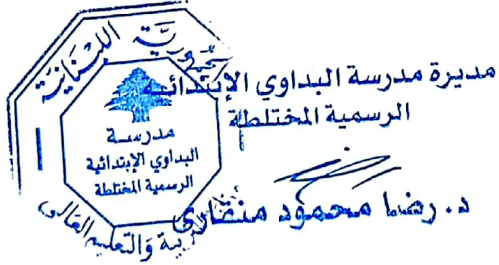 الجمهورية اللبنانية
مدرسة
البداوي الإبتدائية
الرسمية المختلطة
التربية والتعليم العالي
مديرة مدرسة البداوي الإبتدائية
الرسمية المختلطة
د. رضا محمود منقاري